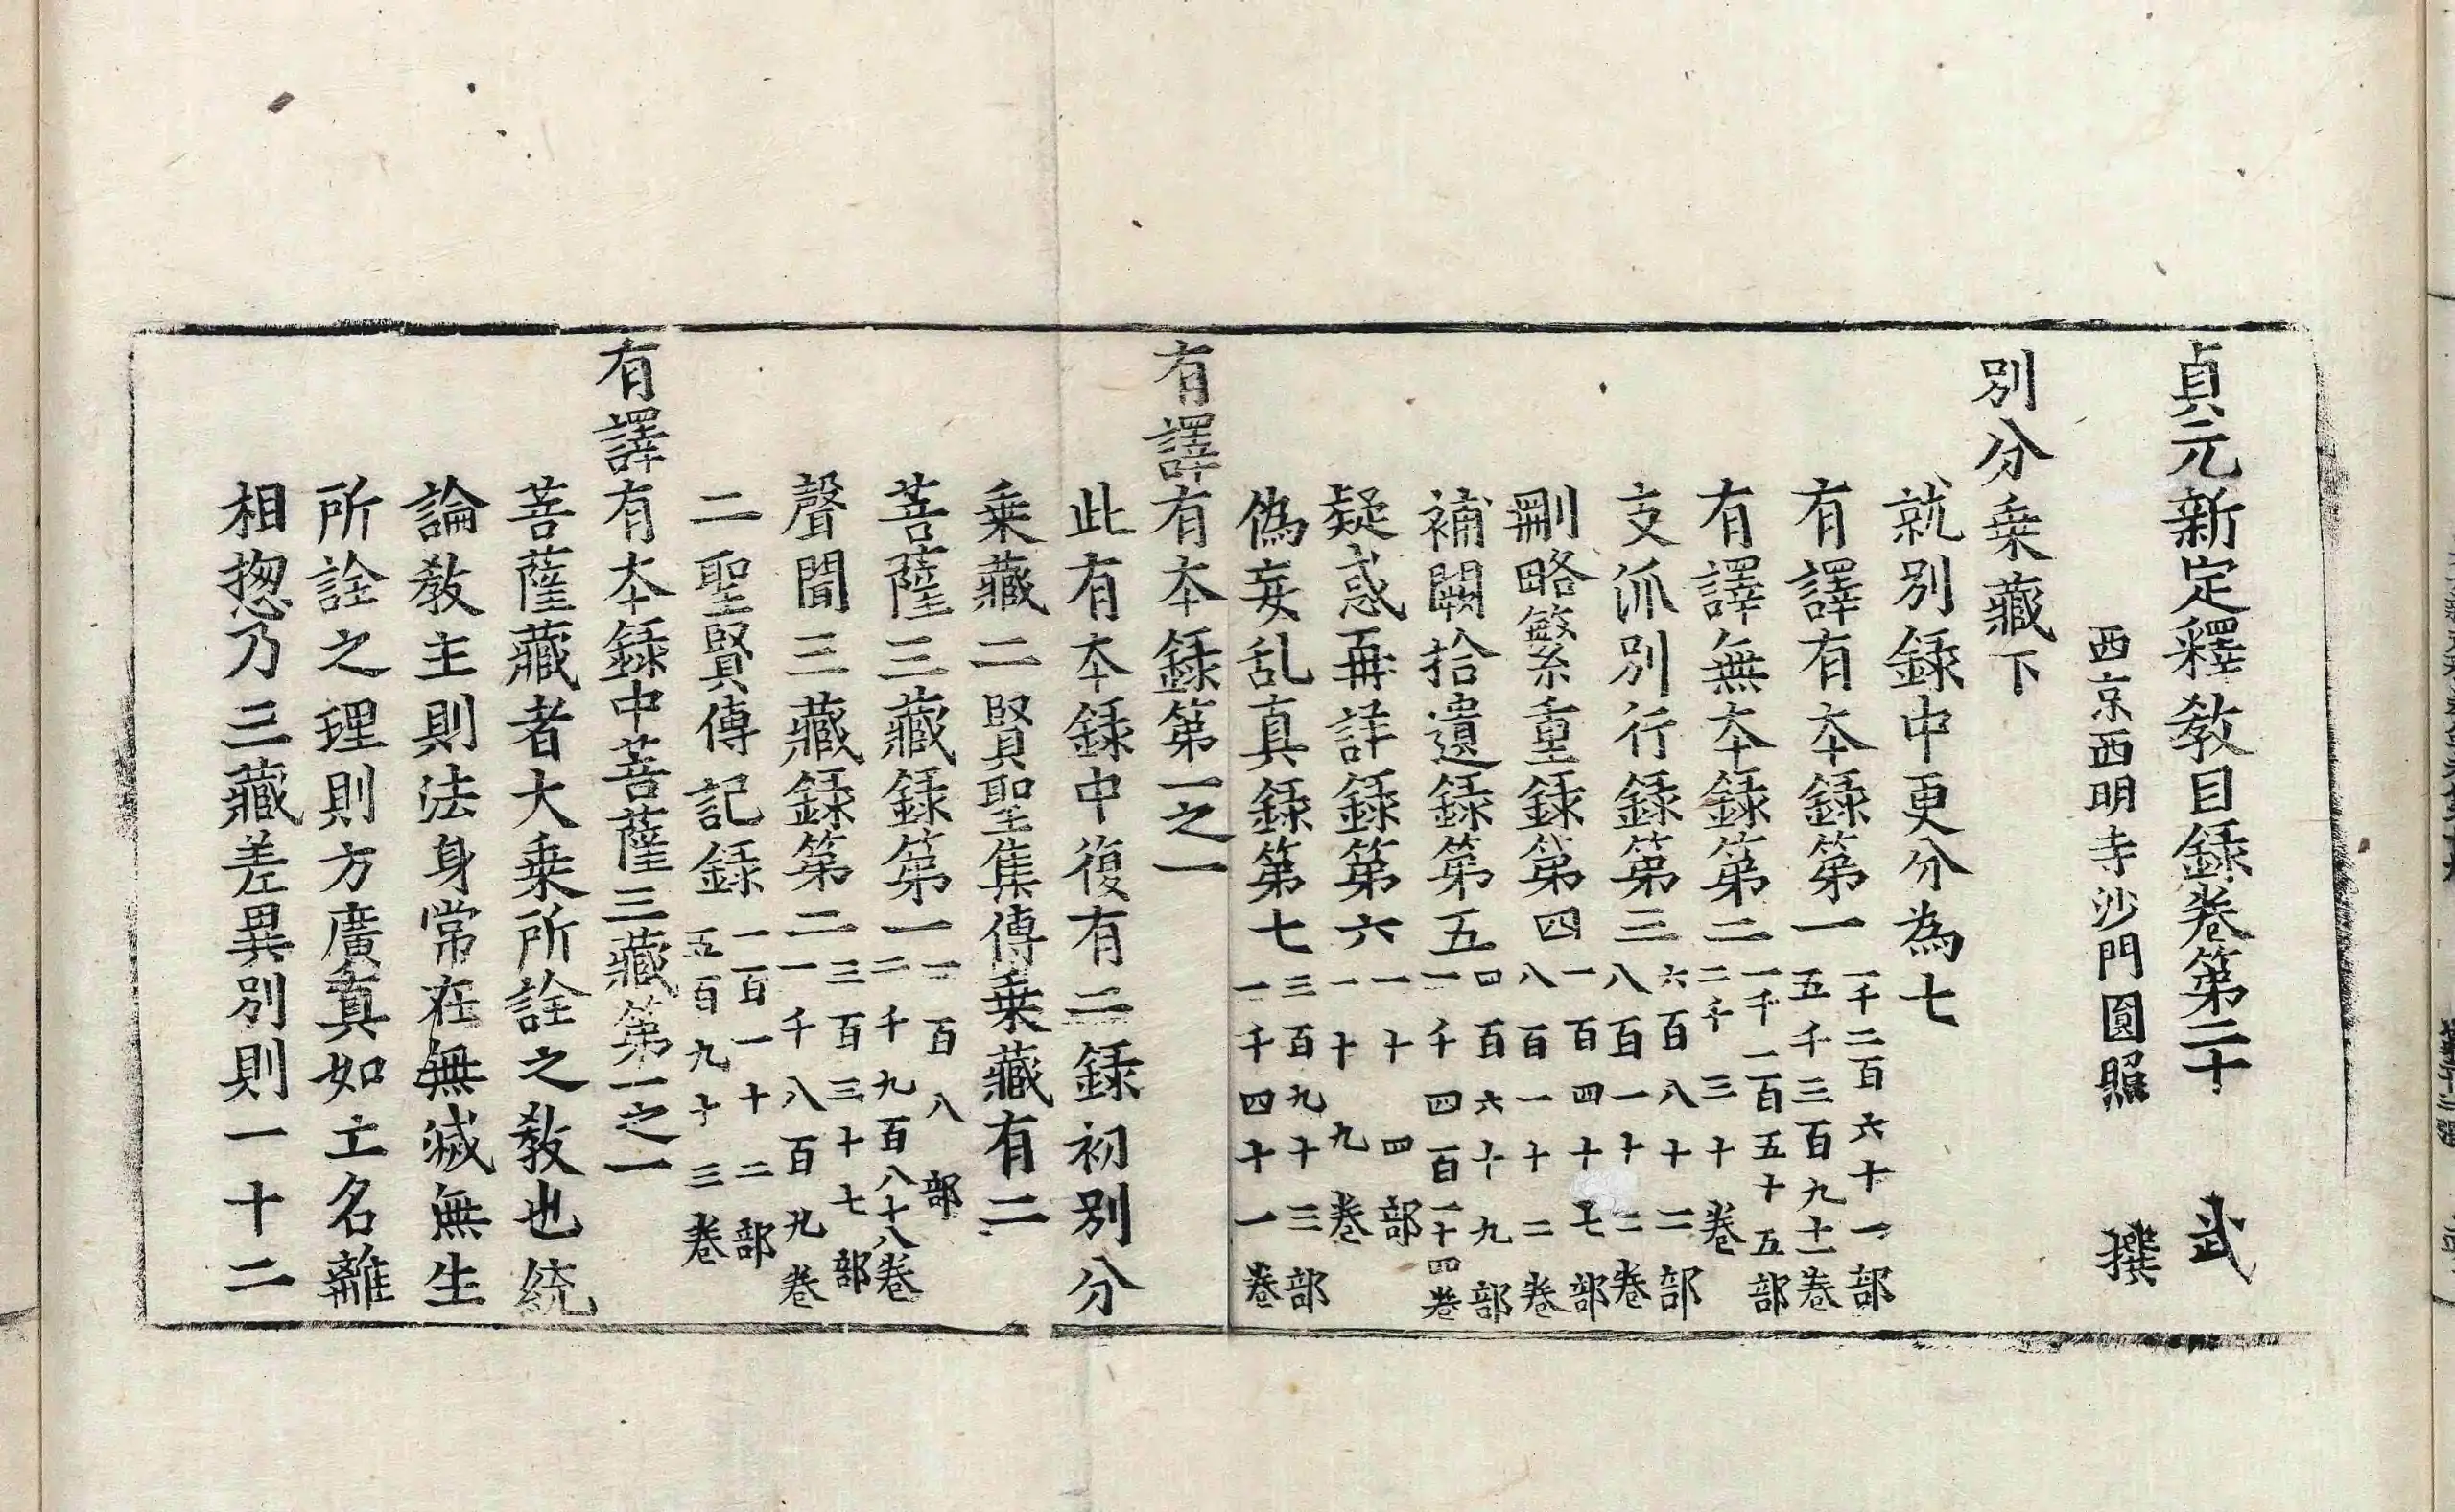 貞元新定釋教目録卷第二十　武
西京西明寺沙門圓照　撰
別分乗藏下
就別録中更分為七
有譯有本録第一一千二百六十一部五千三百九十一卷
有譯無本録第二一千一百五十五部二千三十卷
支派別行録第三六百八十二部八百一十二卷
刪略繁重録第四一百四十七部八百一十二卷
補闕拾遺録第五四百六十九部一千四百二十四卷
疑惑再詳録第六一十四部一十九卷
偽妄乱真録第七三百九十三部一千四十一卷
有譯有本録第一之一
此有本録中復有二録初別分
乗藏二賢聖集傳乗藏有二
菩薩三藏録第一一百八部二千九百八十八卷
聲聞三藏録第二三百三十七部一千八百九卷
二聖賢傳記録一百一十二部五百九十三卷
有譯有本録中菩薩三藏第一之一
菩薩藏者大乗所詮之教也統
論教主則法身常在無滅無生
所詮之理則方廣真如亡名離
相揔乃三藏差異別則一十二